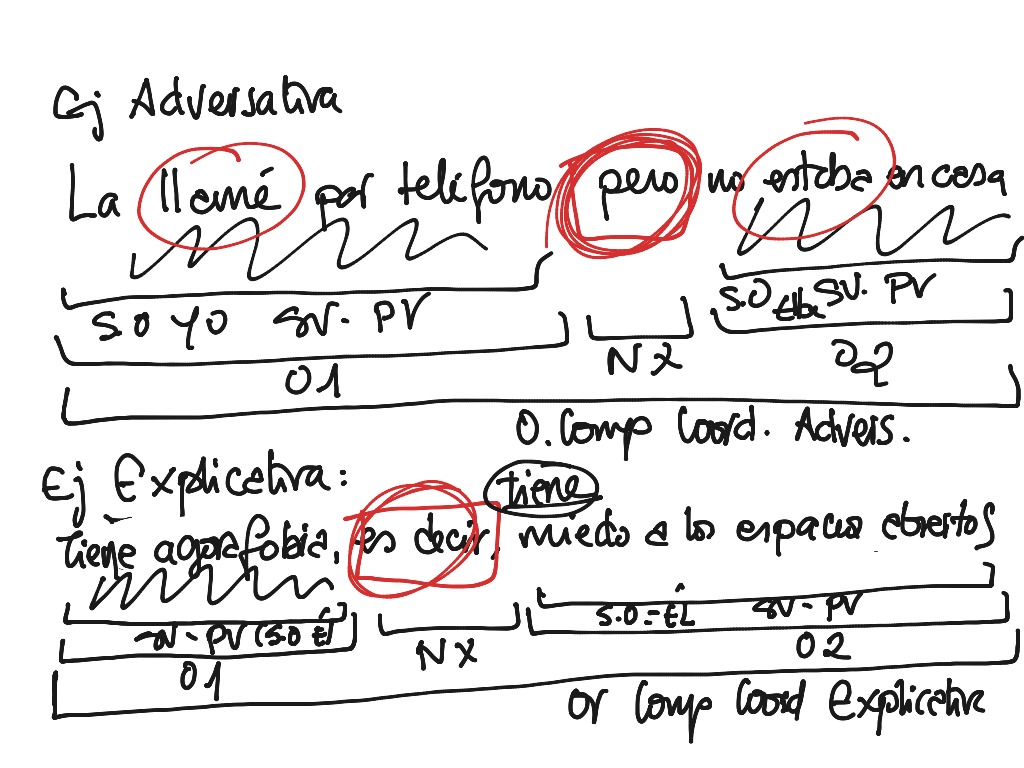 Ej Adversativa
La llamé por teléfono pero no estaba en casa
S.O YO SV- PV S.O Ella SV- PV
O1 NX O2
O. Comp Coord. Advers.
Ej Explicativa: tiene
tiene agorafobia, es decir, miedo a los espacios abiertos
SV - PV (S.O ÉL S.O = ÉL SV - PV
O1 NX O2
Or Comp Coord Explicativa